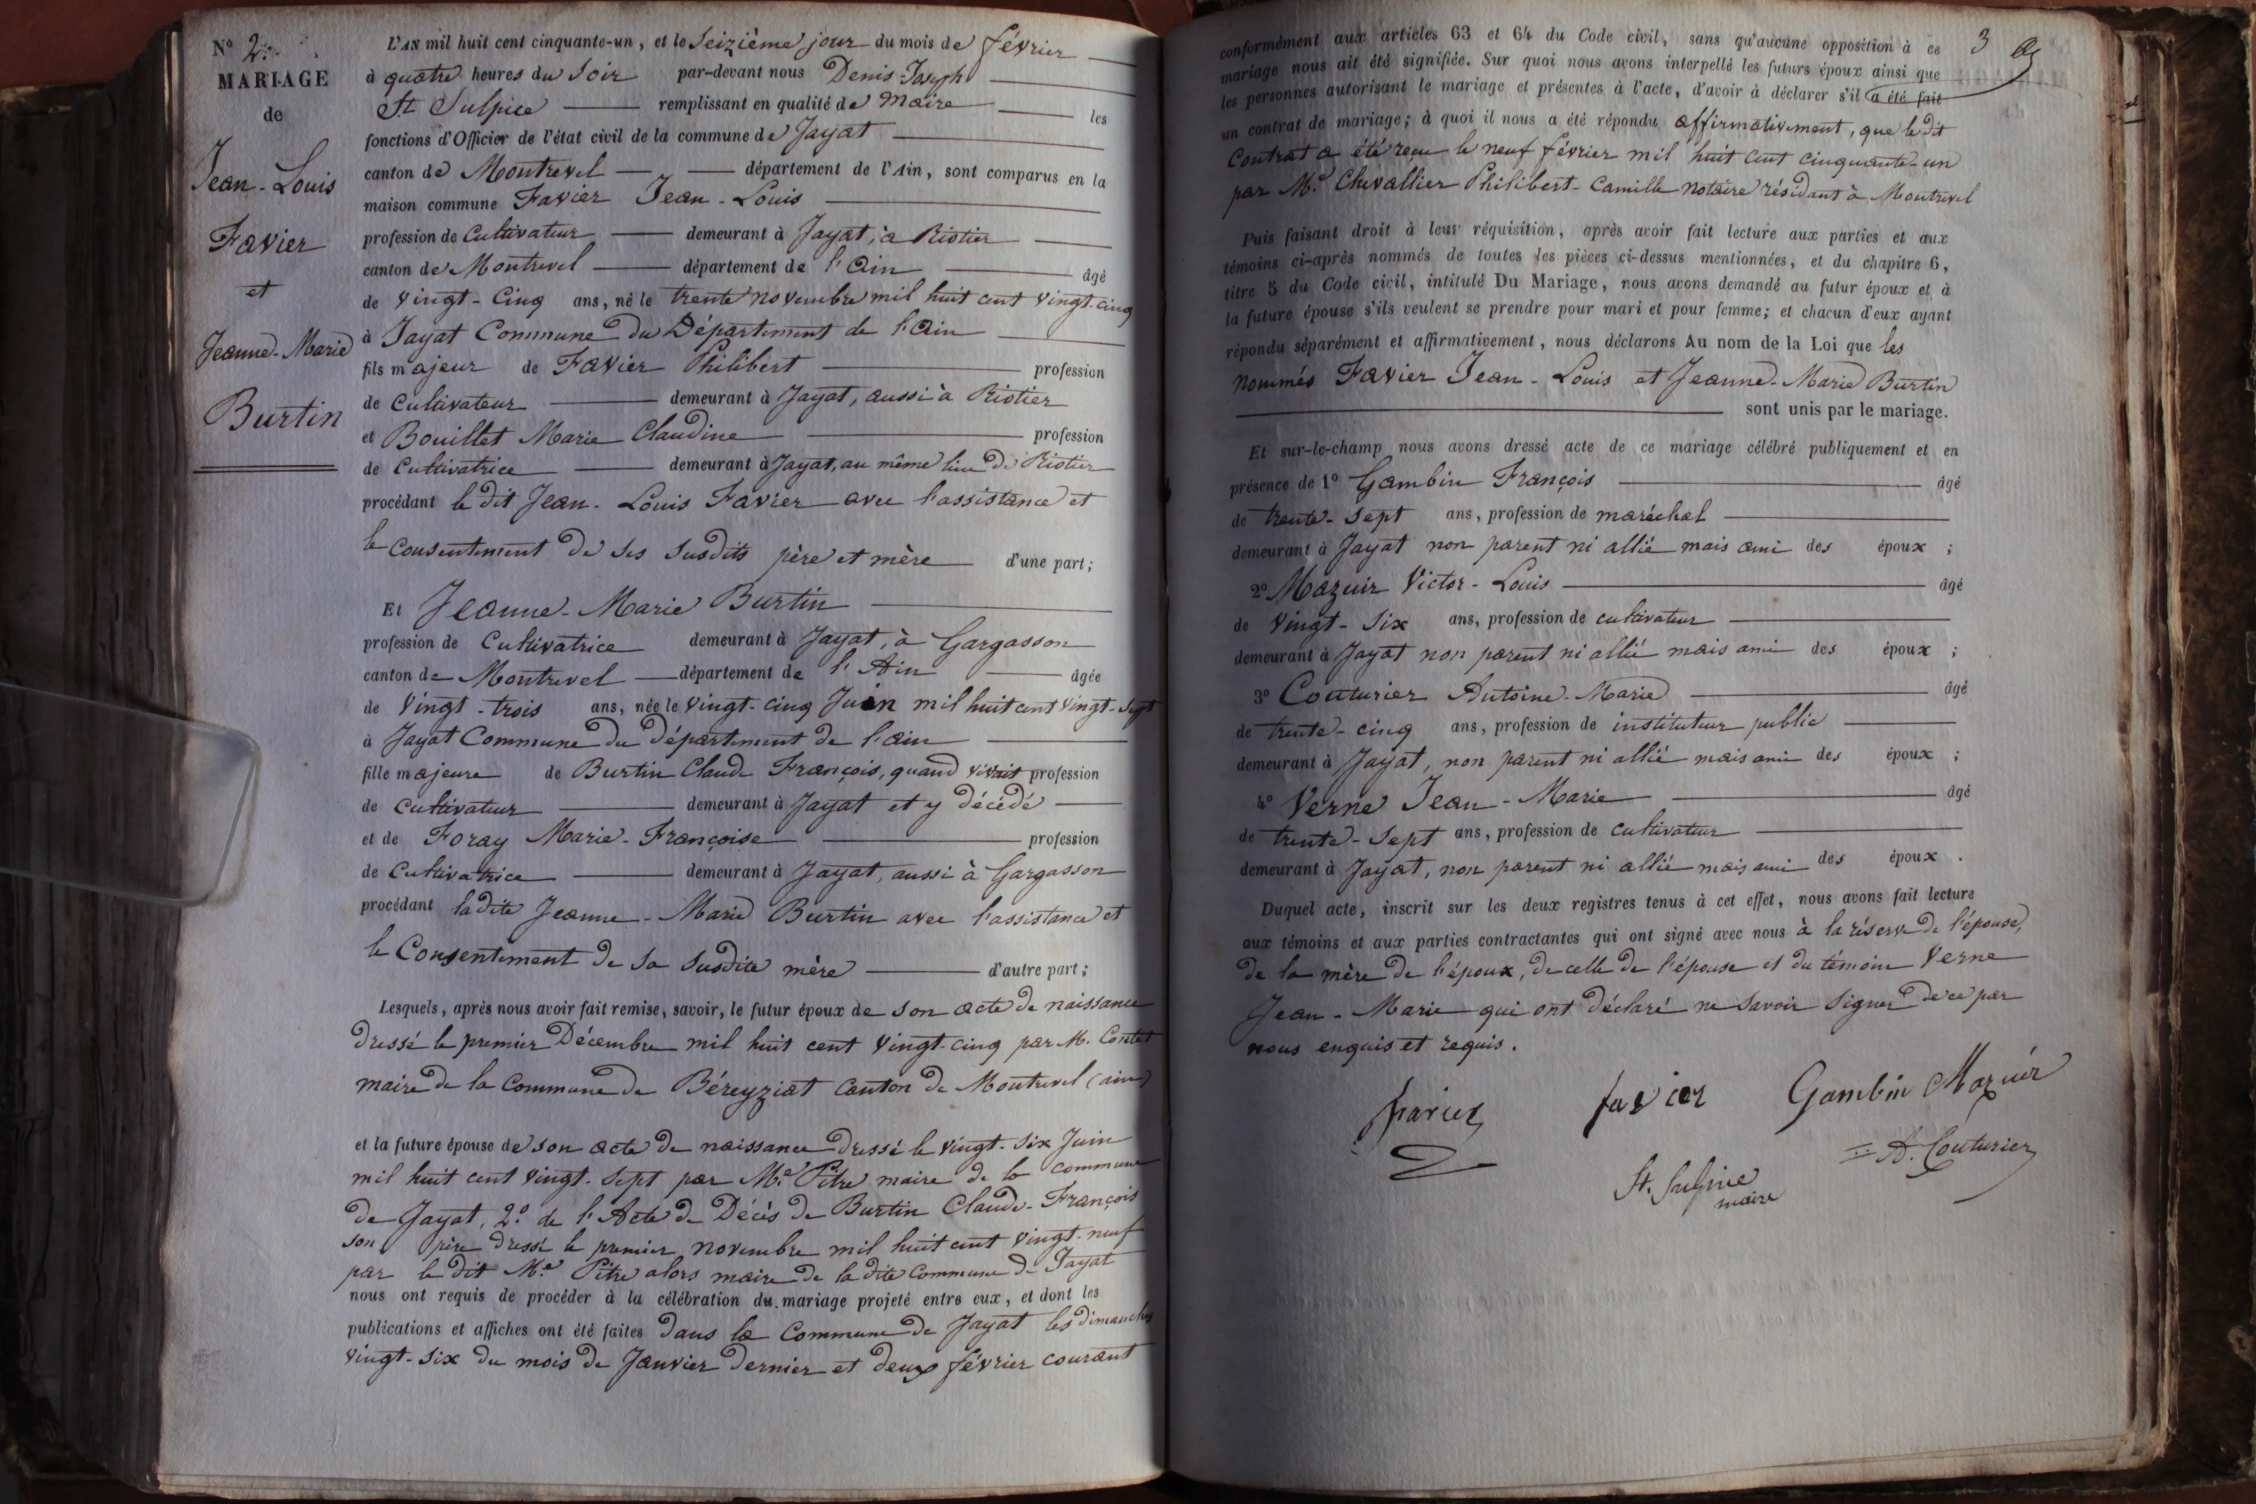 N° 2.
MARIAGE
de
Jean-Louis
Favier
et
Jeanne-Marie
Burtin
L'AN mil huit cent cinquante-un, et le Seizième jour du mois de février
à quatre heures du Soir par-devant nous Denis-Joseph
St Sulpice remplissant en qualité de Maire les
fonctions d'Officier de l'état civil de la commune de Jayat
canton de Montrevel département de l'Ain, sont comparus en la
maison commune Favier Jean-Louis
profession de Cultivateur demeurant à Jayat, à Riotier
canton de Montrevel département de l'Ain âgé
de Vingt-Cinq ans, né le trente novembre mil huit cent vingt-cinq
à Jayat Commune du Département de l'Ain
fils majeur de Favier Philibert profession
de Cultivateur demeurant à Jayat, aussi à Riotier
et Bouillet Marie Claudine profession
de Cultivatrice demeurant à Jayat, au même lieu de Riotier
procédant le dit Jean-Louis Favier avec l'assistance et
le Consentement de ses susdits père et mère d'une part;
Et Jeanne-Marie Burtin
profession de Cultivatrice demeurant à Jayat, à Gargasson
canton de Montrevel département de l'Ain âgée
de Vingt-trois ans, née le Vingt-cinq Juin mil huit cent vingt-sept
à Jayat Commune du département de l'ain
fille majeure de Burtin Claude François, quand vivait profession
de Cultivateur demeurant à Jayat et y décédé
et de Foray Marie-Françoise profession
de Cultivatrice demeurant à Jayat, aussi à Gargasson
procédant ladite Jeanne-Marie Burtin avec l'assistance et
le Consentement de sa susdite mère d'autre part;
Lesquels, après nous avoir fait remise, savoir, le futur époux de son acte de naissance
dressé le premier Décembre mil huit cent Vingt-cinq par M. Contet
maire de la Commune de Béreyziat canton de Montrevel (ain)
et la future épouse de son acte de naissance dressé le vingt-six Juin
mil huit cent vingt-sept par Me Pitre maire de la commune
de Jayat, 2° de l'Acte de Décès de Burtin Claude-François
son père dressé le premier novembre mil huit cent vingt-neuf
par le dit Me Pitre alors maire de la dite Commune de Jayat
nous ont requis de procéder à la célébration du mariage projeté entre eux, et dont les
publications et affiches ont été faites dans la Commune de Jayat les dimanches
vingt-six du mois de Janvier dernier et deux février courant
3
conformément aux articles 63 et 64 du Code civil, sans qu'aucune opposition à ce
mariage nous ait été signifiée. Sur quoi nous avons interpellé les futurs époux ainsi que
les personnes autorisant le mariage et présentes à l'acte, d'avoir à déclarer s'il a été fait
un contrat de mariage; à quoi il nous a été répondu affirmativement, que le dit
Contrat a été reçu le neuf février mil huit cent cinquante-un
par Me Chevallier Philibert-Camille notaire résidant à Montrevel
Puis faisant droit à leur réquisition, après avoir fait lecture aux parties et aux
témoins ci-après nommés de toutes les pièces ci-dessus mentionnées, et du chapitre 6,
titre 5 du Code civil, intitulé Du Mariage, nous avons demandé au futur époux et à
la future épouse s'ils veulent se prendre pour mari et pour femme; et chacun d'eux ayant
répondu séparément et affirmativement, nous déclarons Au nom de la Loi que les
nommés Favier Jean-Louis et Jeanne-Marie Burtin
sont unis par le mariage.
Et sur-le-champ nous avons dressé acte de ce mariage célébré publiquement et en
présence de 1° Gambin François âgé
de trente-sept ans, profession de maréchal
demeurant à Jayat non parent ni allié mais ami des époux;
2° Mazuir Victor-Louis âgé
de Vingt-six ans, profession de cultivateur
demeurant à Jayat non parent ni allié mais ami des époux;
3° Couturier Antoine-Marie âgé
de trente-cinq ans, profession de instituteur public
demeurant à Jayat, non parent ni allié mais ami des époux;
4° Verne Jean-Marie âgé
de trente-sept ans, profession de cultivateur
demeurant à Jayat, non parent ni allié mais ami des époux.
Duquel acte, inscrit sur les deux registres tenus à cet effet, nous avons fait lecture
aux témoins et aux parties contractantes qui ont signé avec nous à la réserve de l'épouse,
de la mère de l'époux, de celle de l'épouse et du témoin Verne
Jean-Marie qui ont déclaré ne savoir signer de ce par
nous enquis et requis.
favier favier Gambin Mazuir
A. Couturier
St. Sulpice
maire